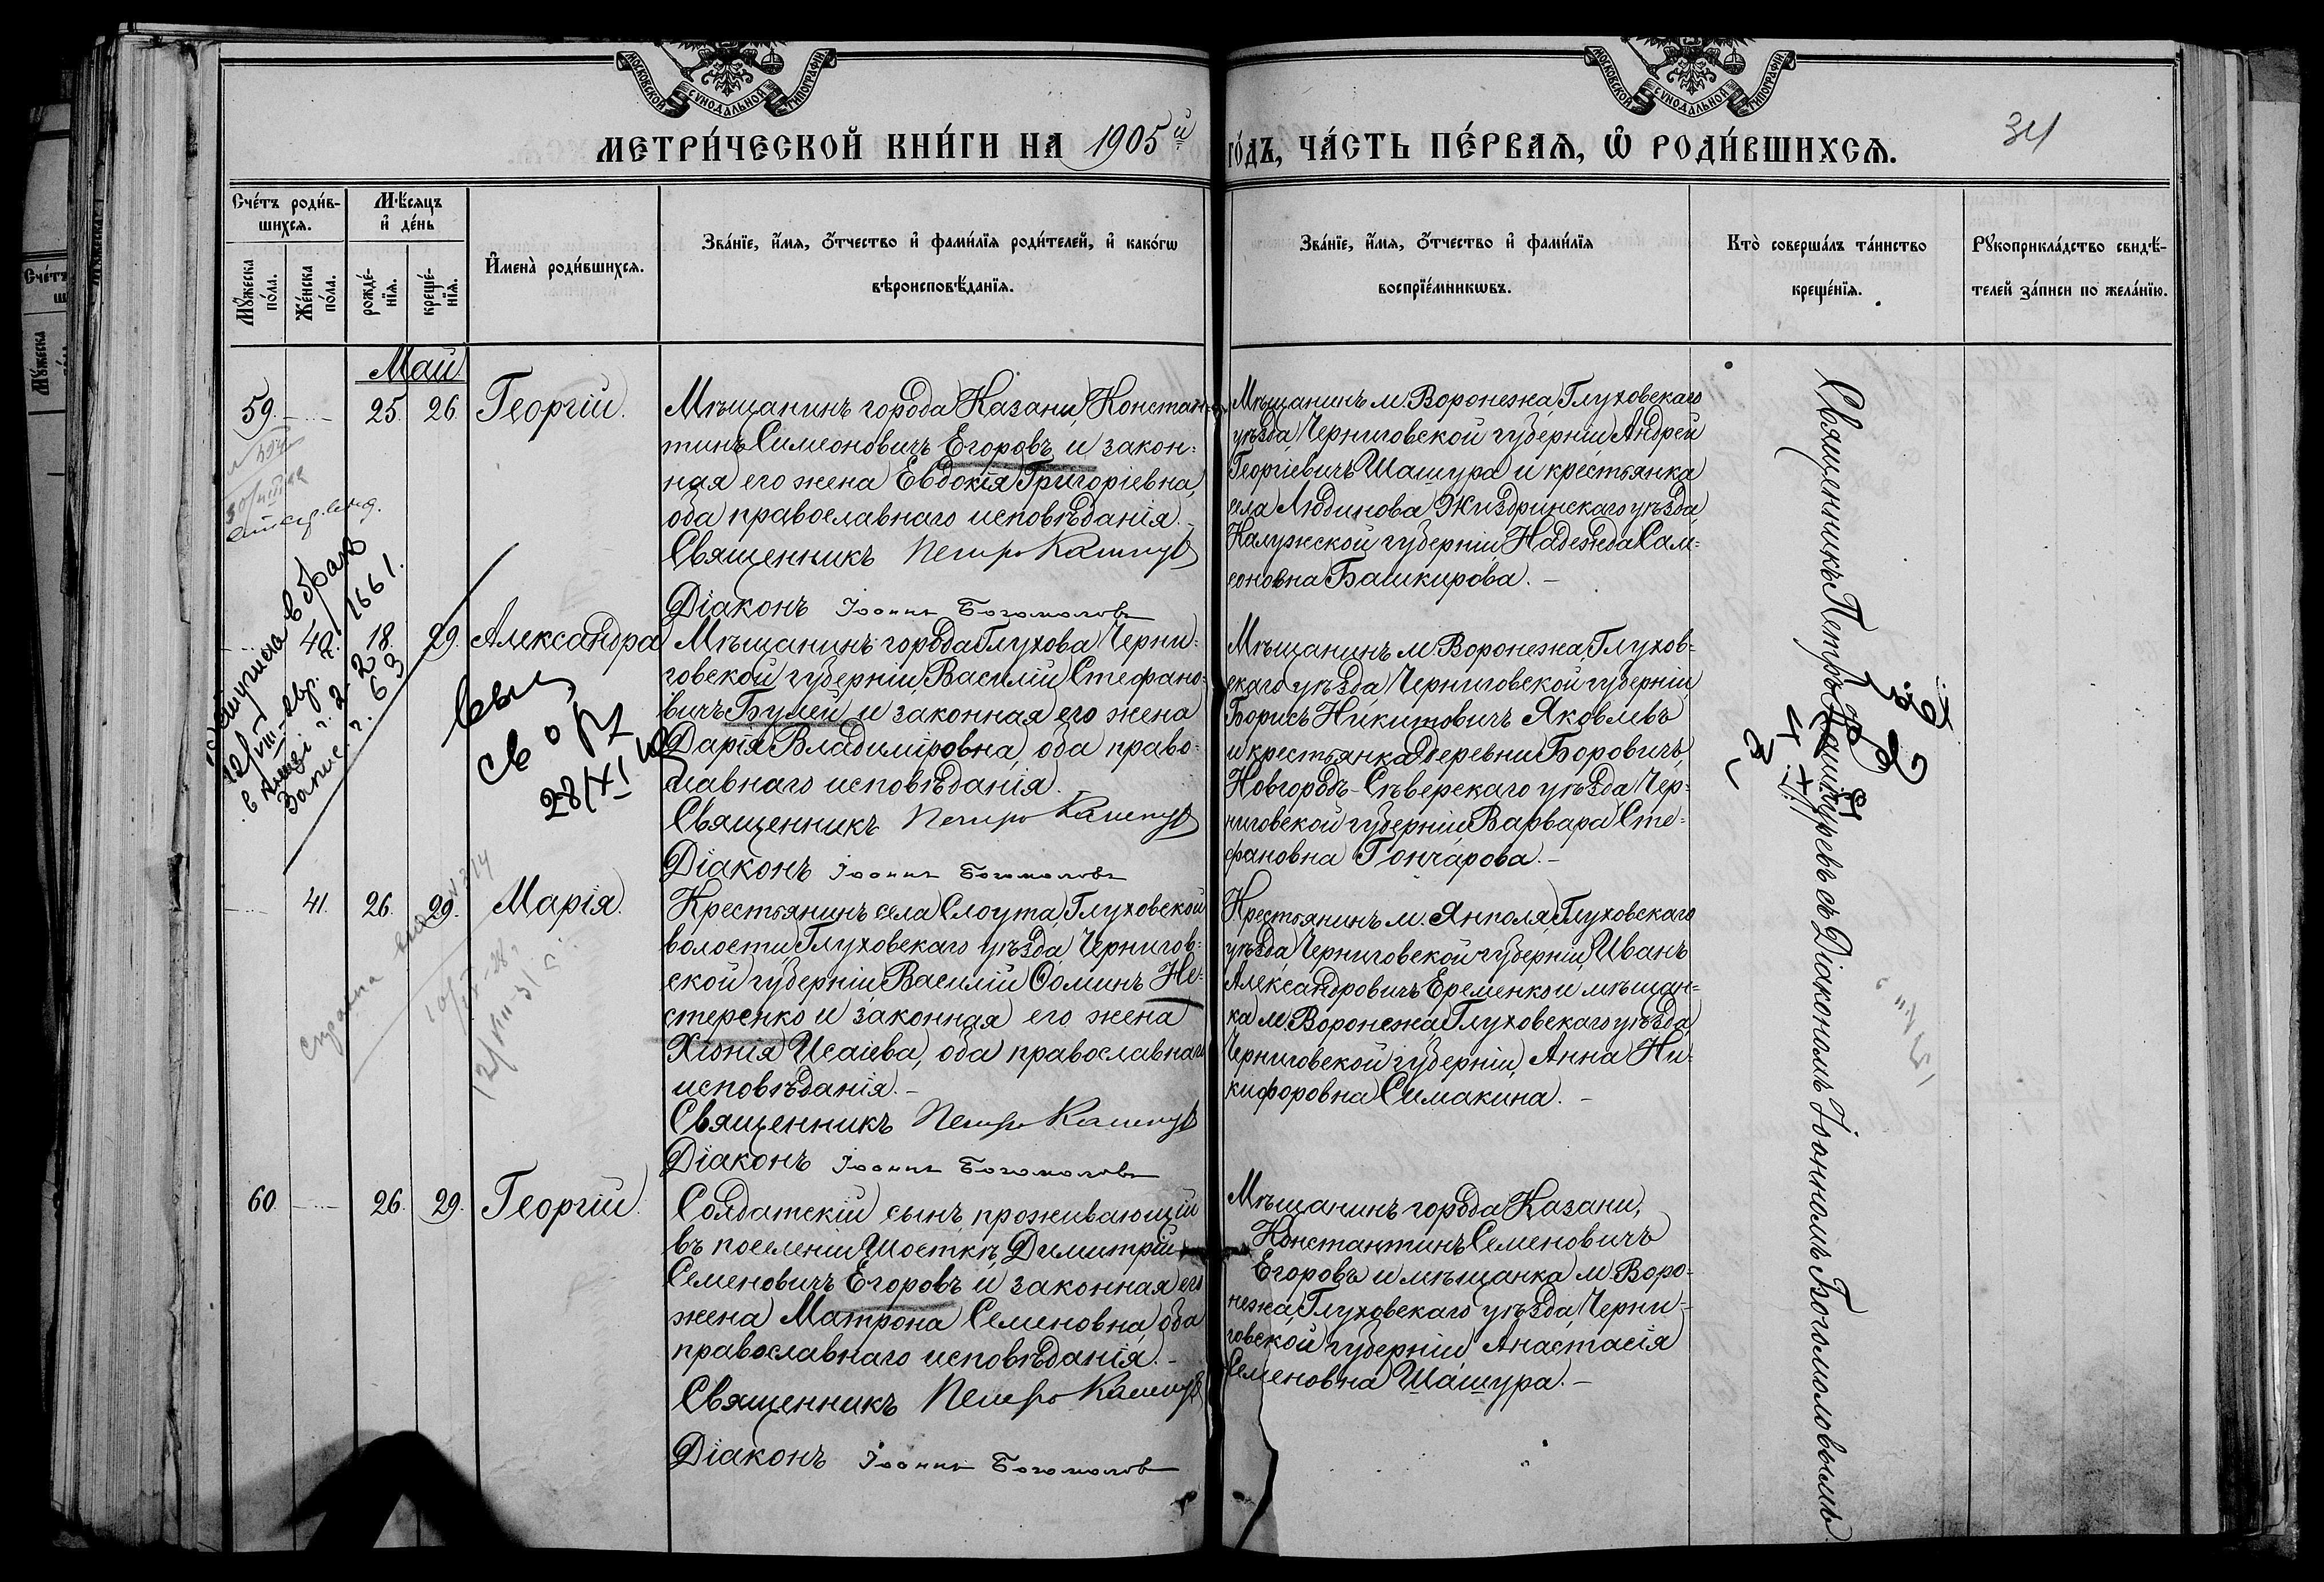 МОСКОВСКОЙ СѴНОДАЛЬНОЙ ТИПОГРАФІИ
МОСКОВСКОЙ СѴНОДАЛЬНОЙ ТИПОГРАФІИ
МЕТРИ́ЧЕСКОЙ КНИ́ГИ НА 1905й го́дъ, ЧА́СТЬ ПЕ́РВАѦ, Ѡ҆ РОДИ́ВШИХСѦ.
34
Сче́тъ роди́в-
шихсѧ.
Мꙋ́жеска
по́ла.
Же́нска
по́ла.
Мѣ́сѧцъ
и҆ де́нь
рожде́-
нїѧ.
креще́-
нїѧ.
И҆мена̀ роди́вшихсѧ.
Зва́нїе, и҆́мѧ, ѻ҆́тчество и҆ фами́лїѧ роди́телей, и҆ како́гѡ
вѣроисповѣ́данїѧ.
Зва́нїе, и҆́мѧ, ѻ҆́тчество и҆ фами́лїѧ
воспрїе́мникѡвъ.
Кто̀ соверша́лъ та́инство
креще́нїѧ.
Рꙋкоприкла́дство свидѣ́-
телей за́писи по жела́нїю.
Май
59. 25. 26. Георгій.
Мѣщанинъ города Казани, Констан-
тинъ Симеоновичъ Егоровъ и закон-
ная его жена Евдокія Григоріевна,
оба православнаго исповѣданія.
Священникъ Петръ Кашпур
Діаконъ Іоаннъ Богомоловъ
Мѣщанинъ м. Воронежа, Глуховскаго
уѣзда, Черниговской губерніи, Андрей
Георгіевичъ Шашура и крестьянка
села Людинова, Жиздринскаго уѣзда,
Калужской губерніи, Надежда Сам-
соновна Башкирова. –
40. 18. 29. Александра
Мѣщанинъ города Глухова, Черни-
говской губерніи, Василій Стефано-
вичъ Булей и законная его жена
Дарія Владиміровна, оба право-
славнаго исповѣданія.
Священникъ Петръ Кашпур
Діаконъ Іоаннъ Богомоловъ
Мѣщанинъ м. Воронежа, Глухов-
скаго уѣзда, Черниговской губерніи,
Борисъ Никитовичъ Яковлевъ
и крестьянка деревни Боровичъ,
Новгородъ-Сѣверскаго уѣзда, Чер-
ниговской губерніи, Варвара Сте-
фановна Гончарова. –
28/XI
41. 26. 29. Марія.
Крестьянинъ села Слоута, Глуховской
волости, Глуховскаго уѣзда, Чернигов-
ской губерніи, Василій Ѳоминъ Не-
стеренко и законная его жена
Хіонія Исаіева, оба православнаго
исповѣданія. –
Священникъ Петръ Кашпур
Діаконъ Іоаннъ Богомоловъ
Крестьянинъ м. Янполя, Глуховскаго
уѣзда, Черниговской губерніи, Иванъ
Александровичъ Еременко и мѣщан-
ка м. Воронежа, Глуховскаго уѣзда,
Черниговской губерніи, Анна Ни-
кифоровна Симакина. –
60. 26. 29. Георгій.
Солдатскій сынъ, проживающій
въ поселеніи Шосткѣ, Димитрій
Семеновичъ Егоровъ и законная его
жена Матрона Семеновна, оба
православнаго исповѣданія. –
Священникъ Петръ Кашпур
Діаконъ Іоаннъ Богомолов
Мѣщанинъ города Казани,
Константинъ Семеновичъ
Егоровъ и мѣщанка м. Воро-
нежа, Глуховскаго уѣзда, Черни-
говской губерніи Анастасія
Семеновна Шашура. –
Священникъ Петръ Кашпуревъ съ Діакономъ Іоанномъ Богомоловымъ